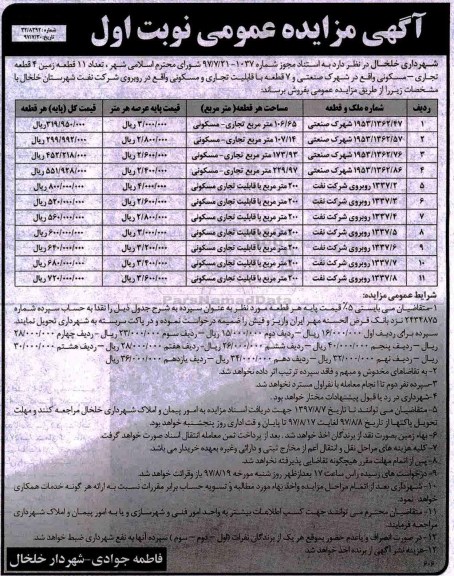 آگهی مزایده عمومی نوبت اول
شماره: ۳۲/۸۳۹۲
تاریخ: ۹۷/۷/۳۰
شهرداری خلخال در نظر دارد به استناد مجوز شماره ۱۰۳۷-۹۷/۷/۲۱ شورای محترم اسلامی شهر، تعداد ۱۱ قطعه زمین ۴ قطعه
تجاری-مسکونی واقع در شهرک صنعتی و ۷ قطعه با قابلیت تجاری و مسکونی واقع در روبروی شرکت نفت شهرستان خلخال با
مشخصات زیر را از طریق مزایده عمومی بفروش برساند:
ردیف شماره ملک و قطعه مساحت هر قطعه (متر مربع) قیمت پایه عرصه هر متر قیمت کل (پایه) هر قطعه
۱ ۱۹۵۳/۱۳۶۲/۴۷ شهرک صنعتی ۱۰۶/۶۵ متر مربع تجاری-مسکونی ۳/۰۰۰/۰۰۰ ریال ۳۱۹/۹۵۰/۰۰۰ ریال
۲ ۱۹۵۳/۱۳۶۲/۵۷ شهرک صنعتی ۱۰۷/۱۴ متر مربع تجاری-مسکونی ۲/۸۰۰/۰۰۰ ریال ۲۹۹/۹۹۲/۰۰۰ ریال
۳ ۱۹۵۳/۱۳۶۲/۷۶ شهرک صنعتی ۱۷۳/۹۳ متر مربع تجاری-مسکونی ۲/۶۰۰/۰۰۰ ریال ۴۵۲/۲۱۸/۰۰۰ ریال
۴ ۱۹۵۳/۱۳۶۲/۸۶ شهرک صنعتی ۲۲۹/۹۷ متر مربع تجاری-مسکونی ۲/۴۰۰/۰۰۰ ریال ۵۵۱/۹۲۸/۰۰۰ ریال
۵ ۱۳۳۷/۲ روبروی شرکت نفت ۲۰۰ متر مربع با قابلیت تجاری مسکونی ۴/۰۰۰/۰۰۰ ریال ۸۰۰/۰۰۰/۰۰۰ ریال
۶ ۱۳۳۷/۳ روبروی شرکت نفت ۲۰۰ متر مربع با قابلیت تجاری مسکونی ۲/۶۰۰/۰۰۰ ریال ۵۲۰/۰۰۰/۰۰۰ ریال
۷ ۱۳۳۷/۴ روبروی شرکت نفت ۲۰۰ متر مربع با قابلیت تجاری مسکونی ۲/۸۰۰/۰۰۰ ریال ۵۶۰/۰۰۰/۰۰۰ ریال
۸ ۱۳۳۷/۵ روبروی شرکت نفت ۲۰۰ متر مربع با قابلیت تجاری مسکونی ۳/۰۰۰/۰۰۰ ریال ۶۰۰/۰۰۰/۰۰۰ ریال
۹ ۱۳۳۷/۶ روبروی شرکت نفت ۲۰۰ متر مربع با قابلیت تجاری مسکونی ۳/۲۰۰/۰۰۰ ریال ۶۴۰/۰۰۰/۰۰۰ ریال
۱۰ ۱۳۳۷/۷ روبروی شرکت نفت ۲۰۰ متر مربع با قابلیت تجاری مسکونی ۳/۴۰۰/۰۰۰ ریال ۶۸۰/۰۰۰/۰۰۰ ریال
۱۱ ۱۳۳۷/۸ روبروی شرکت نفت ۲۰۰ متر مربع با قابلیت تجاری مسکونی ۳/۶۰۰/۰۰۰ ریال ۷۲۰/۰۰۰/۰۰۰ ریال
شرایط عمومی مزایده:
۱-متقاضیان می بایستی ۵٪ قیمت پایه هر قطعه مورد نظر به عنوان سپرده به شرح جدول ذیل را نقدا به حساب سپرده شماره
۲۴۳۴۸۷۵ نزد بانک قرض الحسنه مهر ایران واریز و فیش را ضمیمه درخواست نموده و در پاکت سربسته به شهرداری تحویل نمایند.
سپرده برای ردیف اول ۱۶/۰۰۰/۰۰۰ ریال - ردیف دوم ۱۵/۰۰۰/۰۰۰ ریال - ردیف سوم ۲۳/۰۰۰/۰۰۰ ریال - ردیف چهارم ۲۸/۰۰۰/۰۰۰
ریال - ردیف پنجم ۴۰/۰۰۰/۰۰۰ ریال - ردیف ششم ۲۶/۰۰۰/۰۰۰ ریال - ردیف هفتم ۲۸/۰۰۰/۰۰۰ ریال - ردیف هشتم ۳۰/۰۰۰/۰۰۰
ریال - ردیف نهم ۳۲/۰۰۰/۰۰۰ ریال - ردیف دهم ۳۴/۰۰۰/۰۰۰ ریال - ردیف یازدهم ۳۶/۰۰۰/۰۰۰ ریال
۲-به تقاضاهای مخدوش و مبهم و فاقد سپرده ترتیب اثر داده نخواهد شد.
۳-سپرده نفر دوم تا انجام معامله با نفر اول مسترد نخواهد شد.
۴-شهرداری در رد یا قبول پیشنهادات مختار خواهد بود.
۵-متقاضیان می توانند تا تاریخ ۱۳۹۷/۸/۷ جهت دریافت اسناد مزایده به امور پیمان و املاک شهرداری خلخال مراجعه کنند و مهلت
تحویل پاکتها از تاریخ ۹۷/۸/۸ لغایت ۹۷/۸/۱۷ تا پایان وقت اداری روز پنجشنبه خواهد بود.
۶-بهاء زمین بصورت نقد از برندگان اخذ خواهد شد. بعد از پرداخت ثمن معامله انتقال اسناد صورت خواهد گرفت.
۷-کلیه هزینه های مراحل نقل و انتقال اعم از مخارج ثبتی و دارائی وغیره بعهده خریدار می باشد.
۸-پس از اتمام مهلت مقرر هیچگونه تقاضایی پذیرفته نخواهد شد.
۹-درخواست های رسیده راس ساعت ۱۷ بعدازظهر روز شنبه مورخه ۹۷/۸/۱۹ باز وقرائت خواهد شد.
۱۰-شهرداری بعد از اتمام مراحل مزایده واخذ بهاء مورد مطالبه و تسویه حساب برابر مقررات نسبت به ارائه هر گونه خدمات اقدام
خواهد نمود.
۱۱-متقاضیان محترم می توانند جهت کسب اطلاعات بیشتر به واحد امور فنی و شهرسازی و یا به امور پیمان و املاک شهرداری
مراجعه فرمایند.
۱۲-در صورت انصراف و یا عدم حضور بموقع هر یک از برندگان نفرات (اول - دوم - سوم) سپرده آنها به نفع شهرداری ضبط خواهد شد.
۱۳-هزینه نشر آگهی از برنده اخذ خواهد شد.
۶۰۶
فاطمه جوادی-شهردار خلخال
ParsNamadData